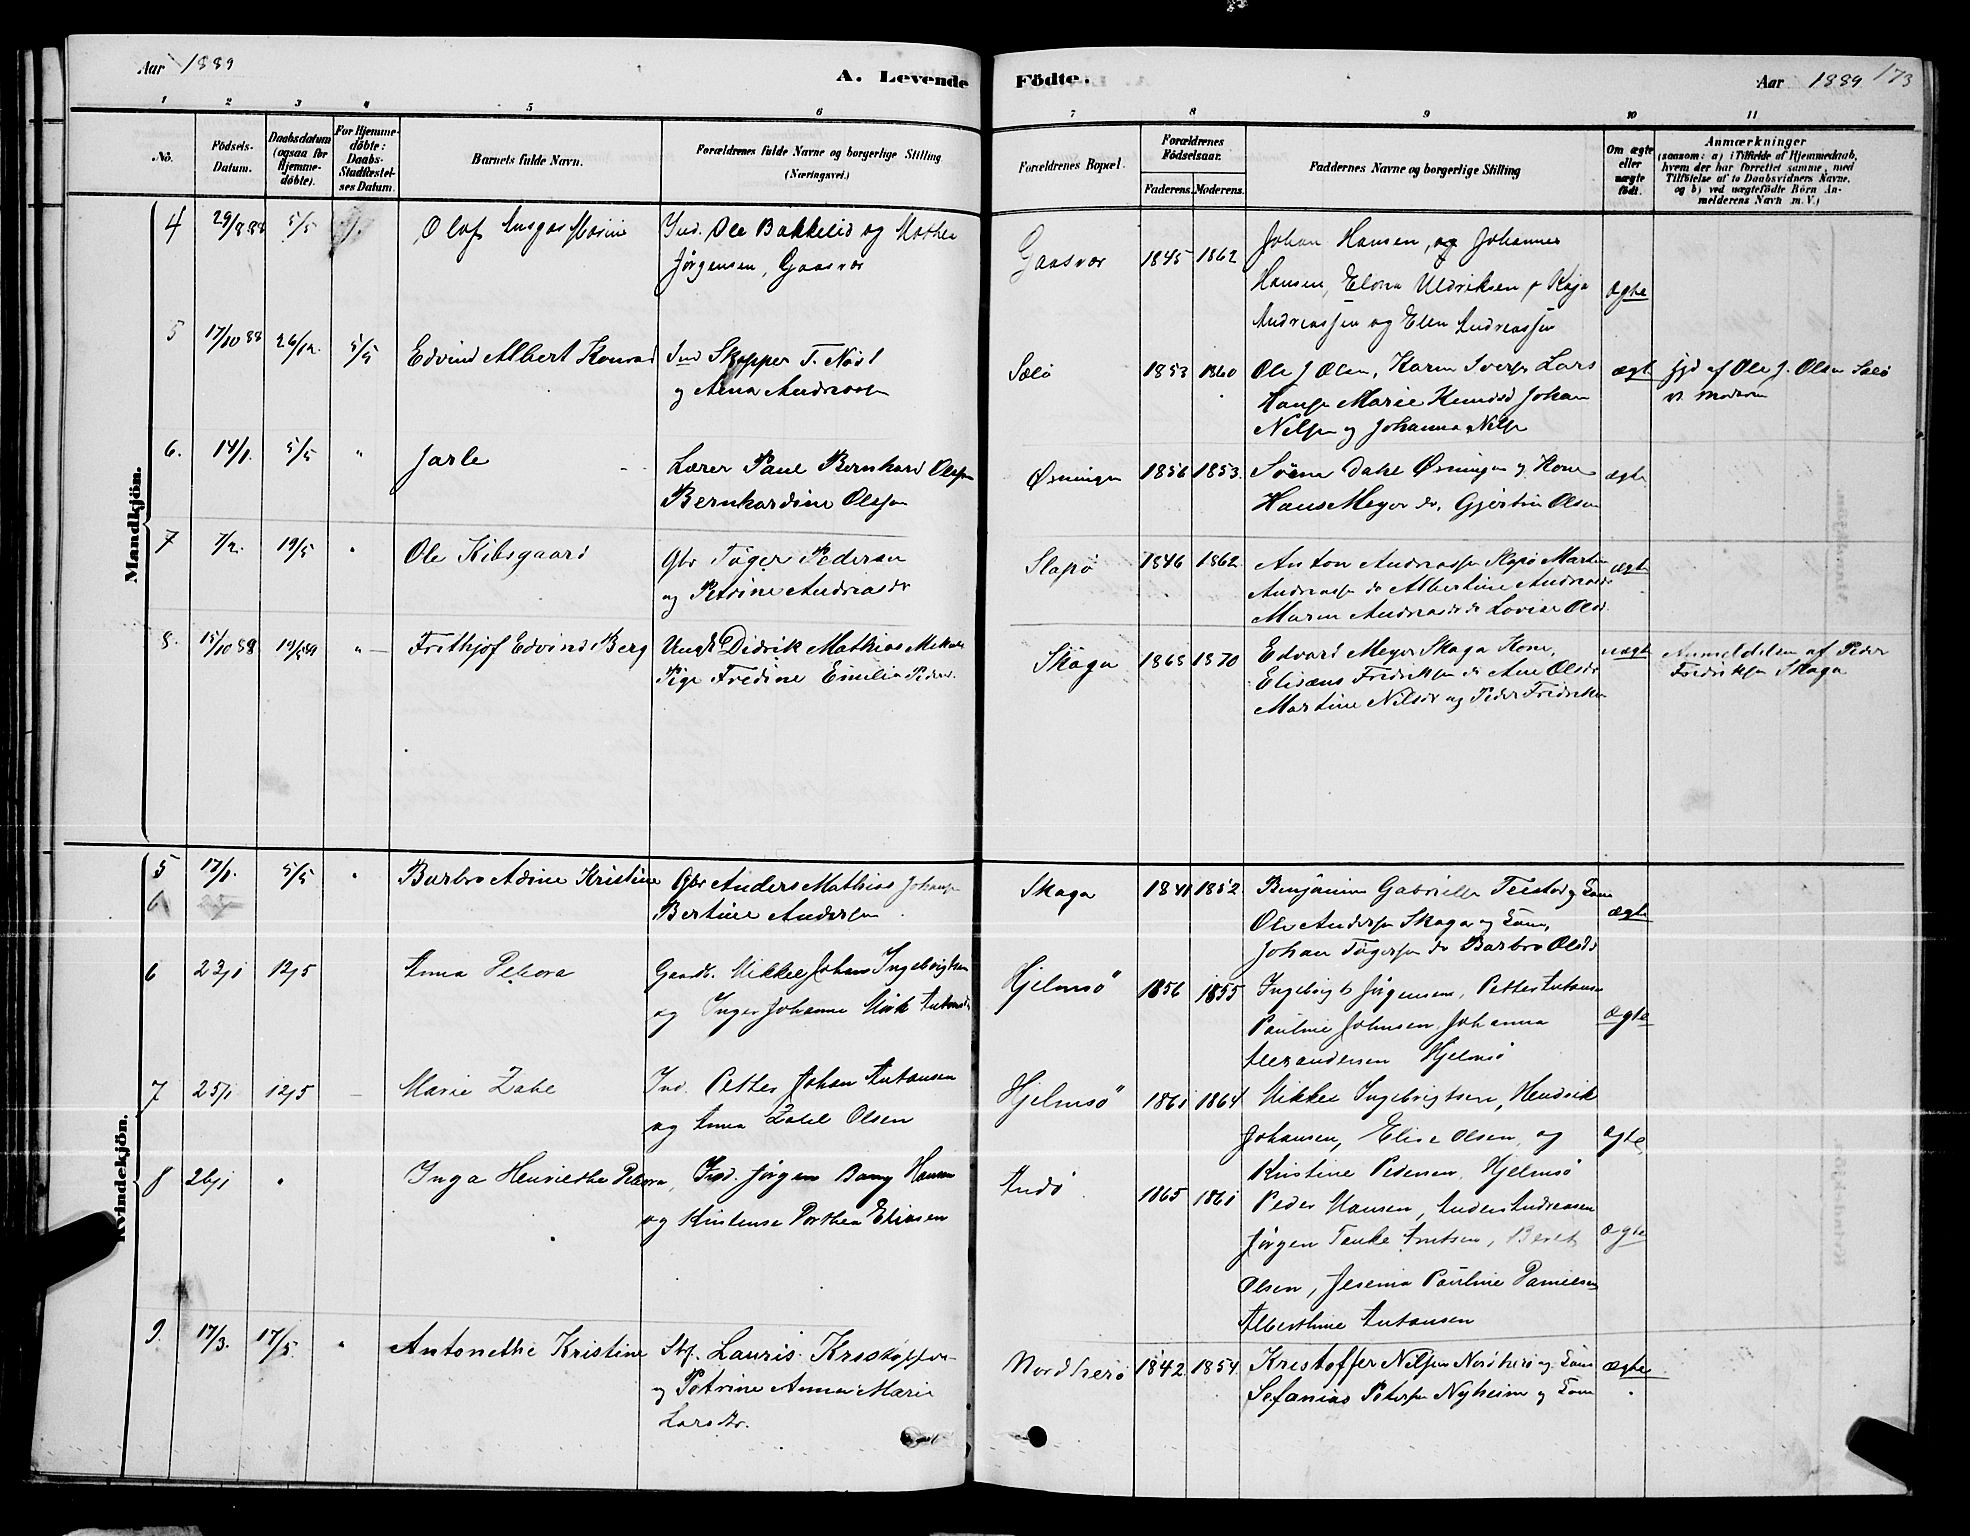 Aar 1889
A. Levende
Fødte.
Aar 1889
173
1 2 3 4 5 6 7 8 9 10 11
No.
Födsels-
Datum.
Daabsdatum
(ogsaa for
Hjemme-
döbte).
For Hjemme-
döbte:
Daabs-
Stadfæstel-
ses Datum.
Barnets fulde Navn.
Forældrenes fulde Navne og borgerlige Stilling
(Næringsvei.)
Forældrenes Bopæl.
Forældrenes
Födselsaar.
Faderens. Moderens.
Faddernes Navne og borgerlige Stilling
Om ægte
eller
uægte
födt.
Anmærkninger
(saasom: a) i Tilfælde af Hjemmedaab,
hvem der har forrettet samme, med
Tilföielse af to Daabsvidners Navne,
og b) ved uægtefödte Börn An-
melderens Navn m. V.)
Mandkjön.
4 29/8 88 5/5 Olaf Ansgar Marin Ind. Ole Bakkelid og Mathea
Jørgensen, Gaasvær
Gaasvær 1845 1862 Johan Hansen, og Johannes
Hansen, Elona Uldriksen & Kaja
Andreassen og Elen Andreassen
Ægte
5 17/10 88 26/12 5/5 Edvind Albert Konrad Ind Skipper T. Nöst
og Anna Andreassen
Sælø 1853 1860 Ole J Olsen, Karen Iversen Lars
Hansen Marie Knudsd Johan
Nilsen og Johanna Nilsen
ægte hjd af Ole J. Olsen Sælø
v. Moderen
6. 14/1. 5/5 " Jarle Lærer Paul Bernhard Olsen
Bernhardine Olsen
Øsningen 1856 1853. Sören Dahl Øsningen og Kone
Hans Meyer do, Gjertine Olsen
ægte
7 7/2. 19/5 " Ole Kibsgaard Gbr Töger Pedersen
og Petrine Andreasdr
Slapø 1846 1862. Anton Andreassen Slapø Martin
Andreassen do Albertine Andreasdr
Maren Andreasdr do Lovise Olsd.
ægte
8. 15/10 88 19/5 89 " Frithjof Edvind Berg Ungk Didrik Mathias Mikals
Pige Fredine Emilia Peders.
Skaga 1868 1870 Edvard Meyer Skaga Kone,
Elisæus Fredriksen do Ane Olsdr
Martine Nilsdr og Peder Fredriksen
uægte Anmeldelsen af Peder
Fredriksen Skaga
Kvindekjön.
5 17/1. 5/5 " Barbro Adine Kristine Gbr Anders Mathias Johansen
Bertine Andersen
Skaga 1841 1852 Benjamin Gabrielsen Teistad og Kone
Ole Andersen Skaga og Kone,
Johan Tögersen do Barbro Olsdr
ægte
6
6 23/1 12/5 Anna Petora Gaardb. Mikkel Johans Ingebrigtsen
og Inger Johanna Mörk Antonsdr
Hjelmsö 1856 1855 Ingebrigt Jørgensen, Petter Antonsen
Pauline Johnsen, Johanna
Alexandersen Hjelmsö
ægte
7 25/1 12/5 Marie Zabe Ind. Petter Johan Antonsen
og Anna Zabel Olsen
Hjelmsö 1861 1864 Mikkel Ingebrigtsen, Hendrik
Johansen, Elise Olsen, og
Kristine Pedersen, Hjelmsö
ægte,
8 26/1 " Inga Henriethe Petora, Ind. Jørgen Bang Hansen
og Kirstense Dorthea Eliasen
Andø 1865 1861 Peder Hansen, Anders Andreasen
Jørgen Tanke Arntsen, Beret
Olsen, Jesenia Pauline Danielsen
Alberthine Antonsen
ægte
9. 17/3. 17/5. " Antonethe Kristine Stf. Lauris Kristoffer
og Petrine Anna Marie
Larsdtr.
Nordherø 1842 1854. Kristoffer Nilsen Nordherø og Kone
Sefanias Petersen Nyheim og Kone
ægte